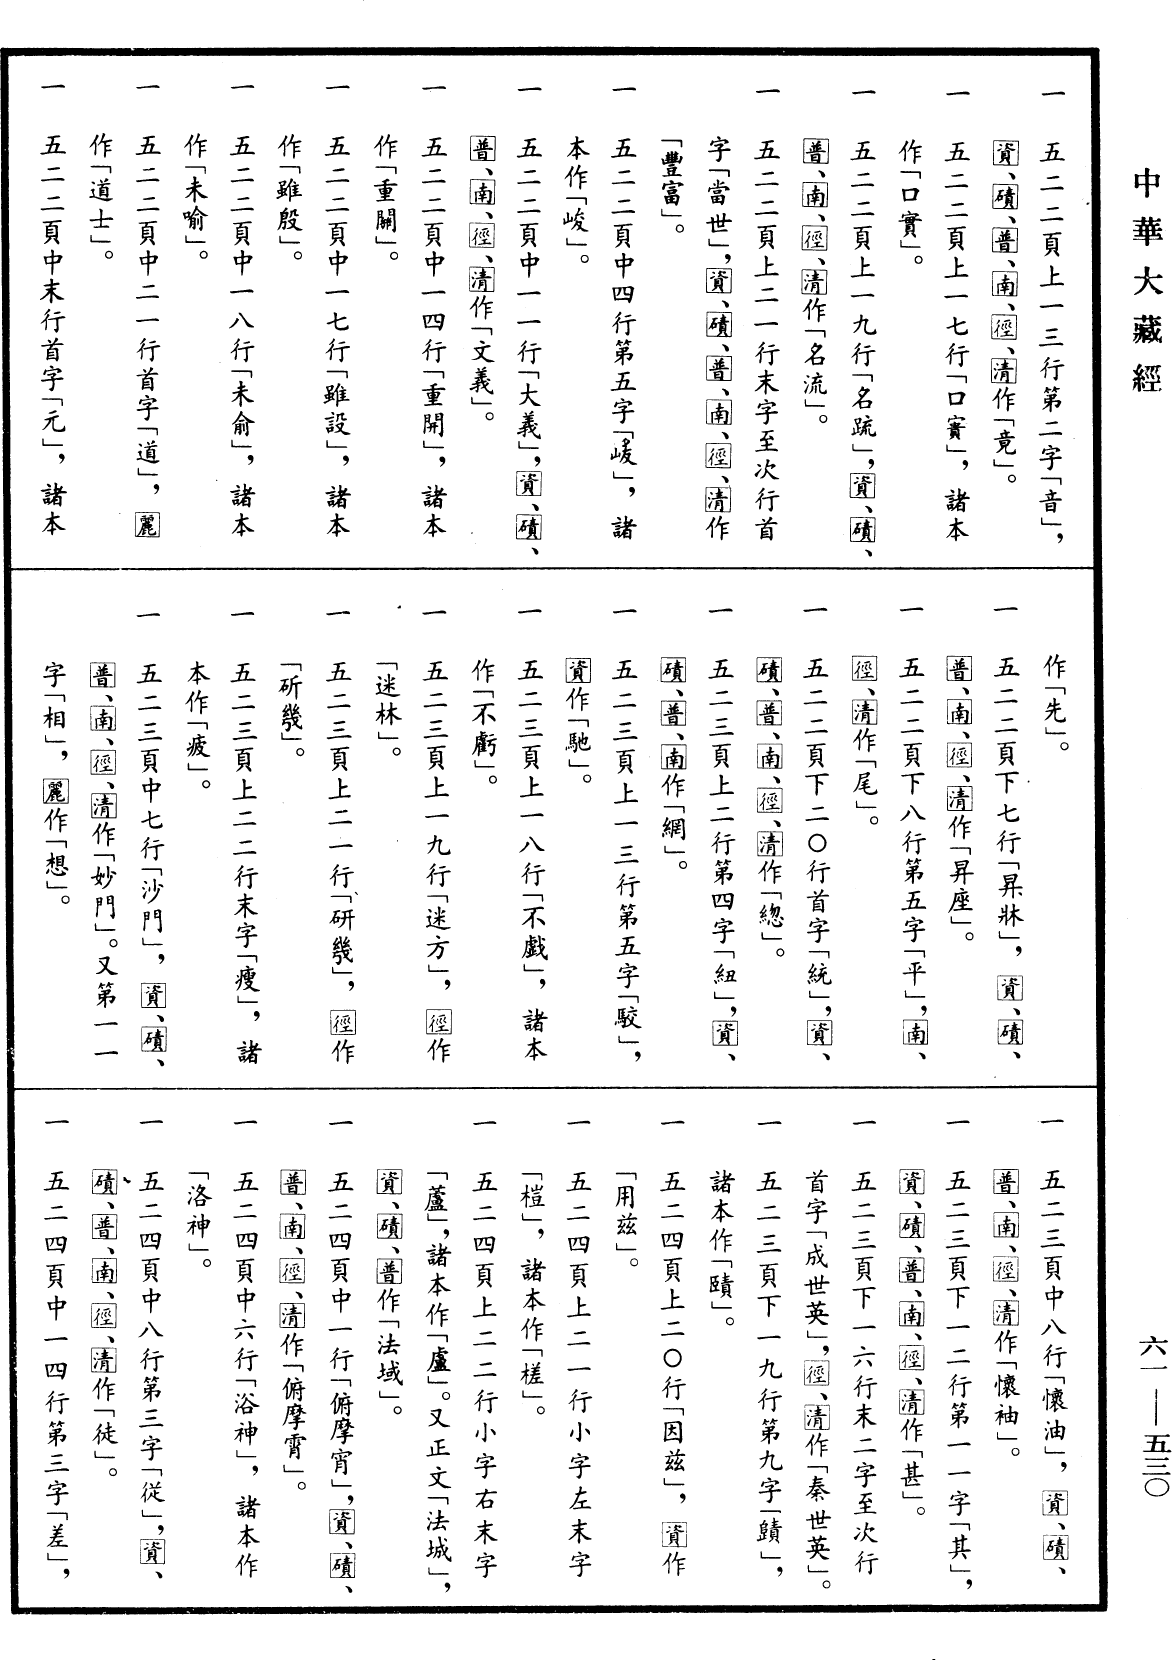 中華大藏經
六一—五三〇
一　五二二頁上一三行第二字「音」，
資、磧、普、南、徑、清作「竟」。
一　五二二頁上一七行「口實」，諸本
作「口實」。
一　五二二頁上一九行「名䟽」，資、磧、
普、南、徑、清作「名流」。
一　五二二頁上二一行末字至次行首
字「當世」，資、磧、普、南、徑、清作
「豐富」。
一　五二二頁中四行第五字「㟲」，諸
本作「峻」。
一　五二二頁中一一行「大義」，資、磧、
普、南、徑、清作「文義」。
一　五二二頁中一四行「重開」，諸本
作「重關」。
一　五二二頁中一七行「雖設」，諸本
作「雖殷」。
一　五二二頁中一八行「未俞」，諸本
作「未喻」。
一　五二二頁中二一行首字「道」，麗
作「道士」。
一　五二二頁中末行首字「元」，諸本
作「先」。
一　五二二頁下七行「昇牀」，資、磧、
普、南、徑、清作「昇座」。
一　五二二頁下八行第五字「平」，南、
徑、清作「尾」。
一　五二二頁下二〇行首字「統」，資、
磧、普、南、徑、清作「緫」。
一　五二三頁上二行第四字「紐」，資、
磧、普、南作「網」。
一　五二三頁上一三行第五字「駮」，
資作「馳」。
一　五二三頁上一八行「不戲」，諸本
作「不虧」。
一　五二三頁上一九行「迷方」，徑作
「迷林」。
一　五二三頁上二一行「研幾」，徑作
「斫幾」。
一　五二三頁上二二行末字「瘦」，諸
本作「疲」。
一　五二三頁中七行「沙門」，資、磧、
普、南、徑、清作「妙門」。又第一一
字「相」，麗作「想」。
一　五二三頁中八行「懷油」，資、磧、
普、南、徑、清作「懷袖」。
一　五二三頁下一二行第一一字「其」，
資、磧、普、南、徑、清作「甚」。
一　五二三頁下一六行末二字至次行
首字「成世英」，徑、清作「秦世英」。
一　五二三頁下一九行第九字「蹟」，
諸本作「賾」。
一　五二四頁上二〇行「因茲」，資作
「用茲」。
一　五二四頁上二一行小字左末字
「榿」，諸本作「槎」。
一　五二四頁上二二行小字右末字
「蘆」，諸本作「盧」。又正文「法城」，
資、磧、普作「法域」。
一　五二四頁中一行「俯摩宵」，資、磧、
普、南、徑、清作「俯摩霄」。
一　五二四頁中六行「浴神」，諸本作
「洛神」。
一　五二四頁中八行第三字「從」，資、
磧、普、南、徑、清作「徒」。
一　五二四頁中一四行第三字「差」，